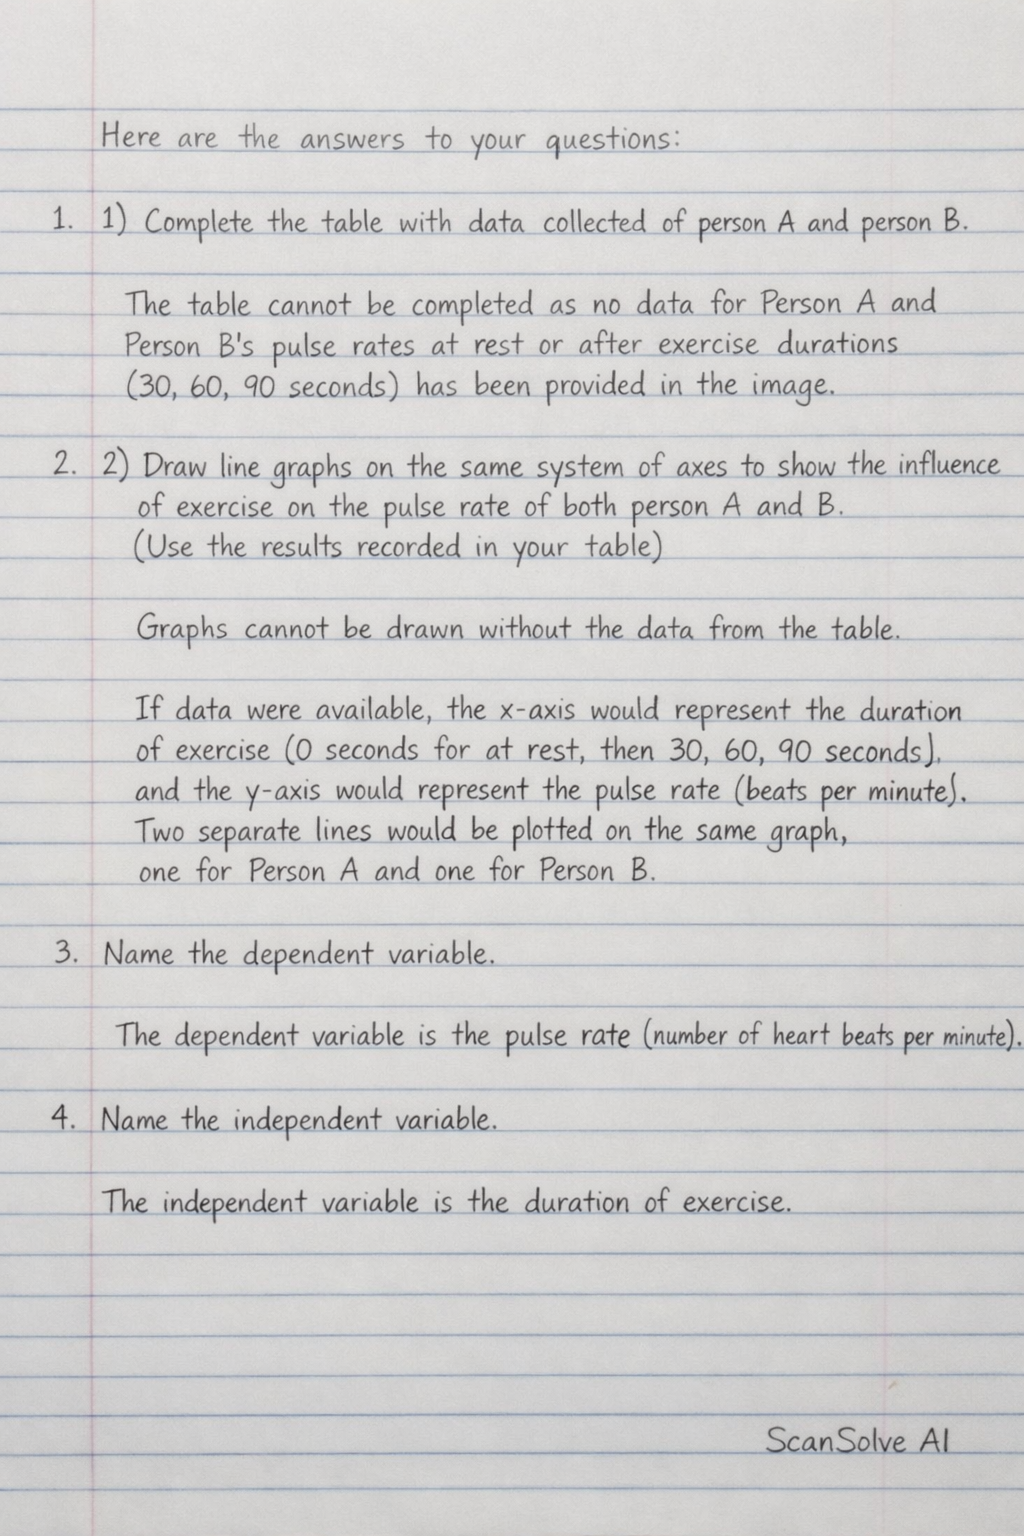 Here are the answers to your questions:
1. 1) Complete the table with data collected of person A and person B.
The table cannot be completed as no data for Person A and
Person B's pulse rates at rest or after exercise durations
(30, 60, 90 seconds) has been provided in the image.
2. 2) Draw line graphs on the same system of axes to show the influence
of exercise on the pulse rate of both person A and B.
(Use the results recorded in your table)
Graphs cannot be drawn without the data from the table.
If data were available, the x-axis would represent the duration
of exercise (0 seconds for at rest, then 30, 60, 90 seconds),
and the y-axis would represent the pulse rate (beats per minute).
Two separate lines would be plotted on the same graph,
one for Person A and one for Person B.
3. Name the dependent variable.
The dependent variable is the pulse rate (number of heart beats per minute).
4. Name the independent variable.
The independent variable is the duration of exercise.
ScanSolve AI